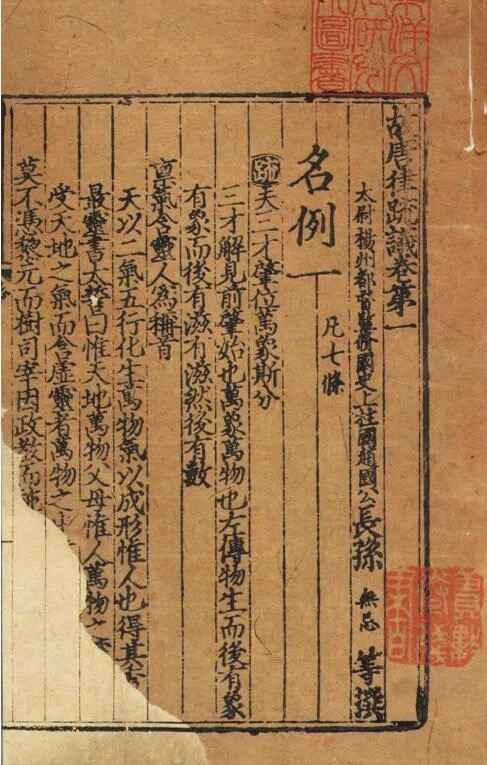 故唐律疏議卷第一
太尉楊州都督監脩國史上柱國趙國公長孫無忌等撰
名例一
凡七條
疏夫三才肇位萬象斯分
三才解見前肇始也萬象萬物也左傳物生而後有象
有象而後有滋有滋然後有數
稟氣含靈人為稱首
天以二氣五行化生萬物氣以成形惟人也得其
最靈書太誓曰惟天地萬物父母惟人萬物之
受天地之氣而含虛靈者萬物之
莫不憑黎元而樹司宰因政教而